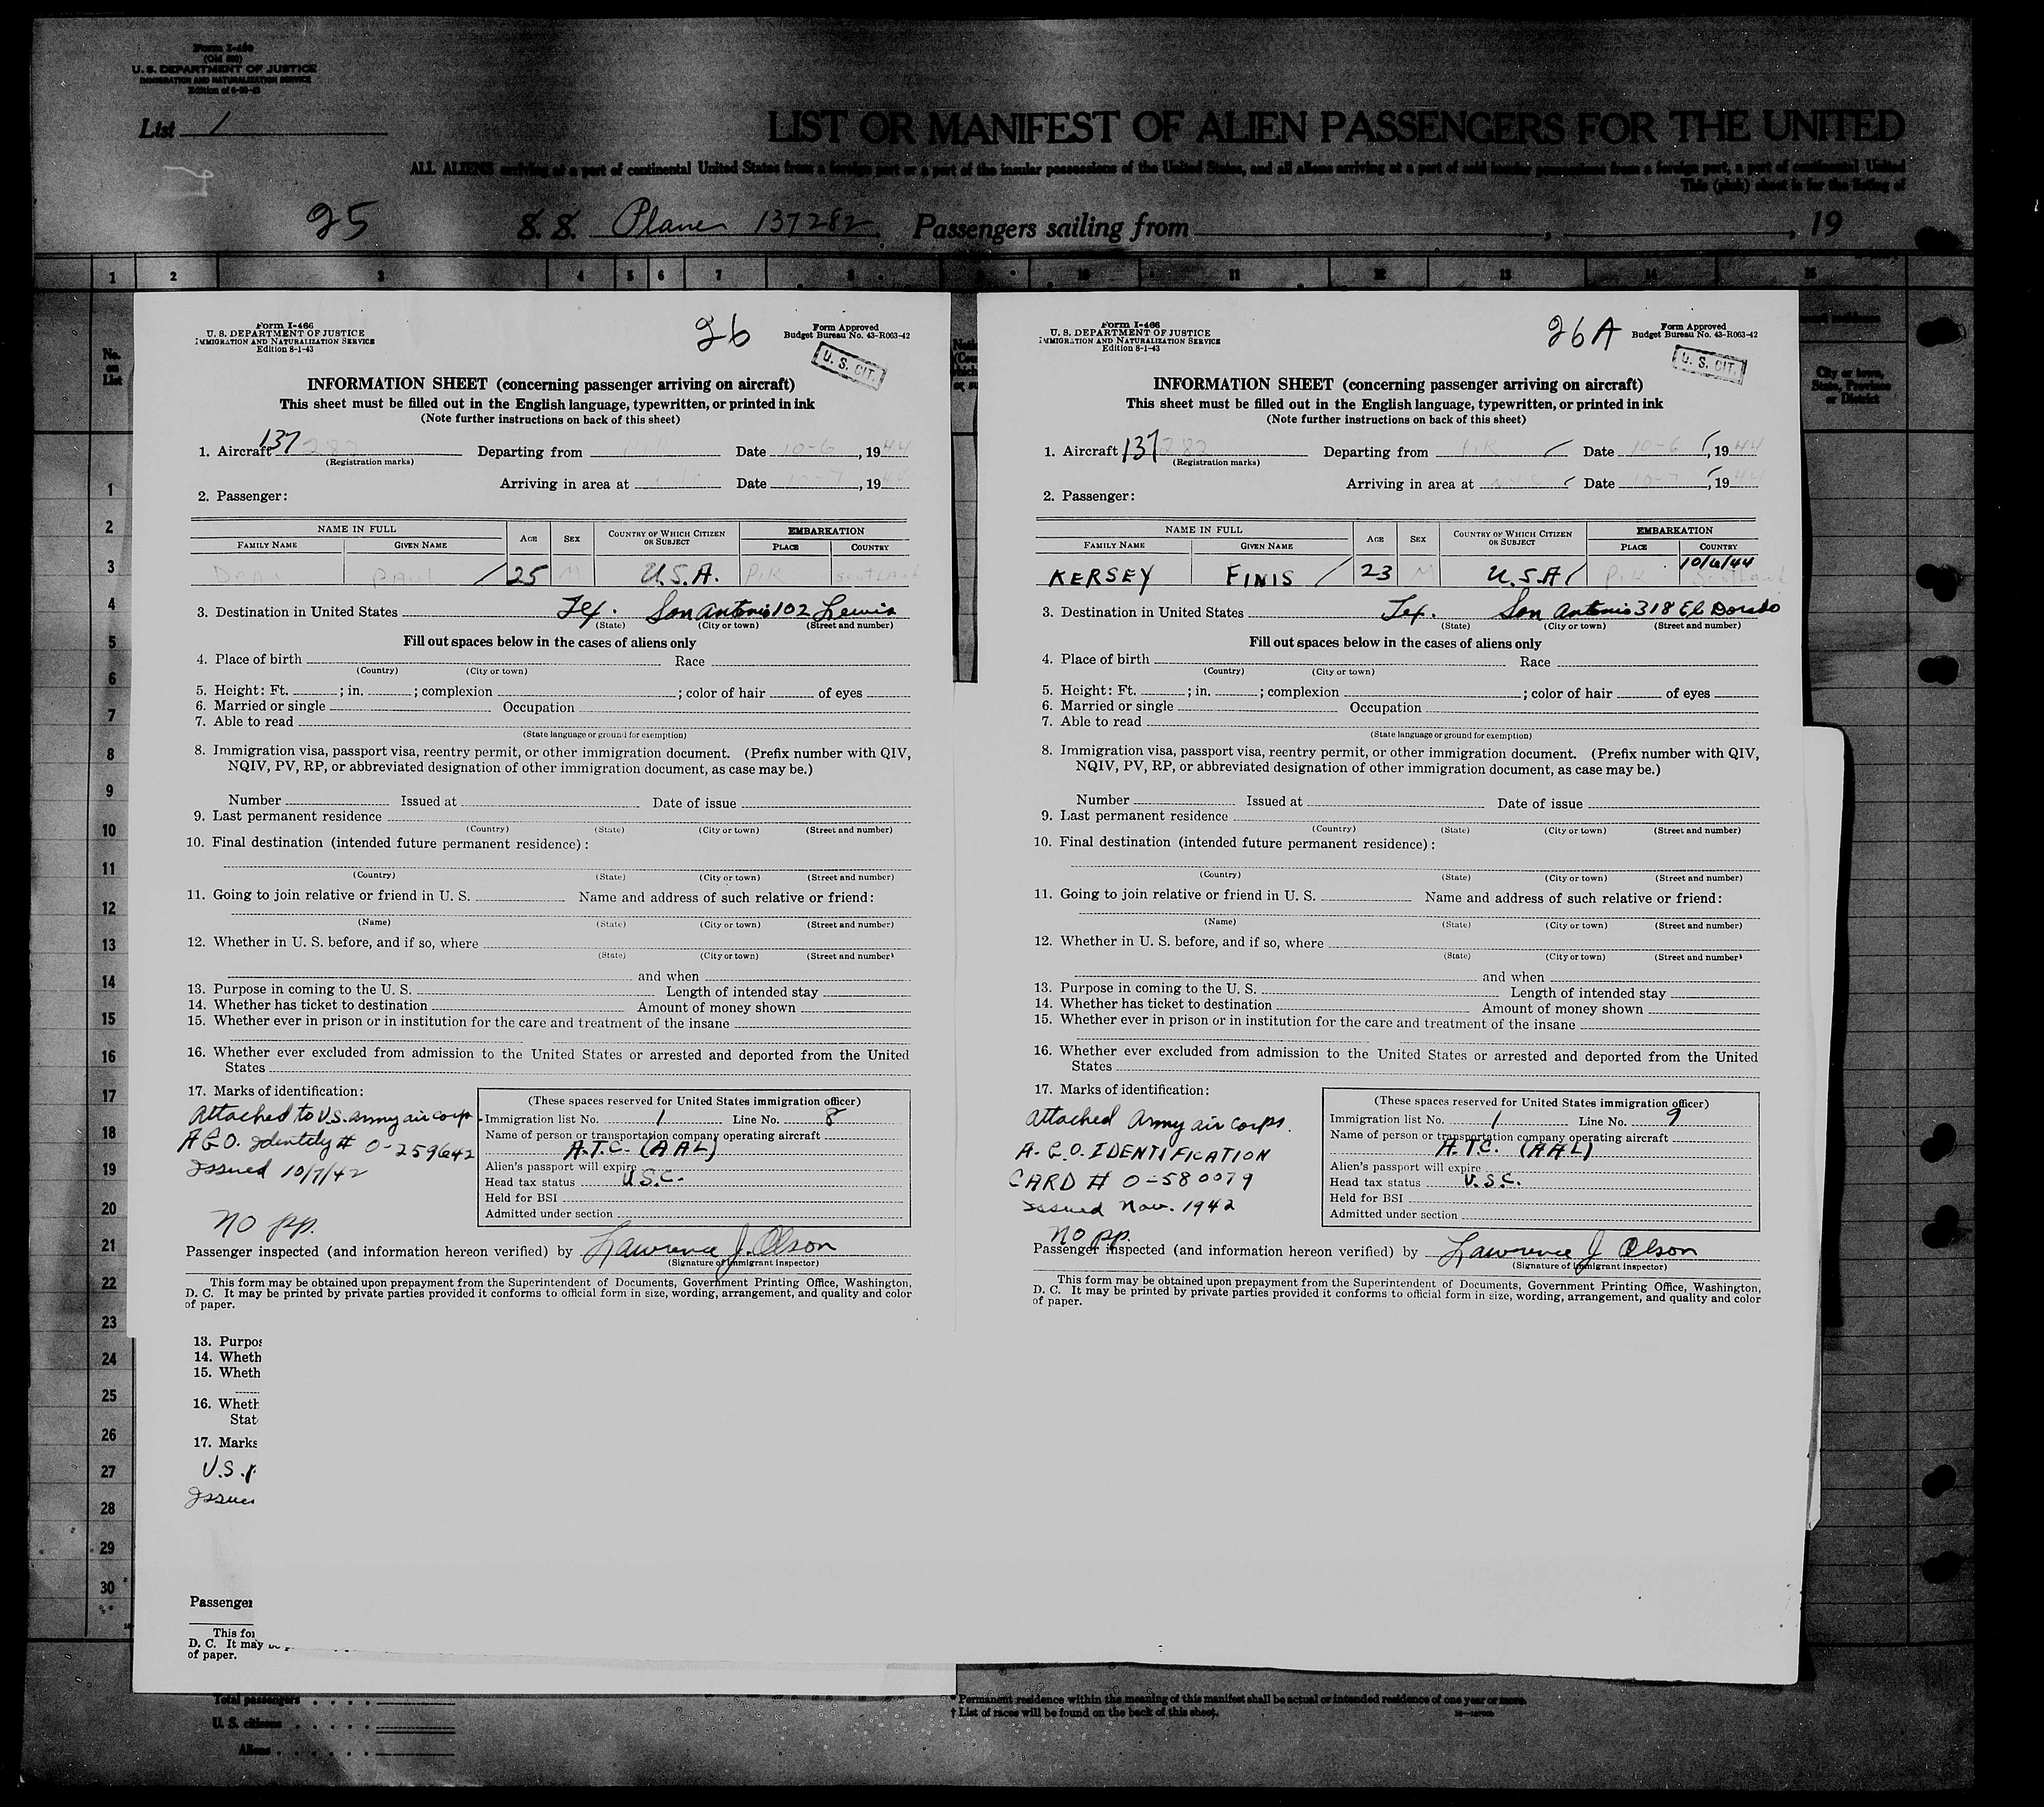 Form I-466
(Old 500)
U. S. DEPARTMENT OF JUSTICE
IMMIGRATION AND NATURALIZATION SERVICE
List 1
LIST OR MANIFEST OF ALIEN PASSENGERS FOR THE UNITED
ALL ALIENS arriving at a port of continental United States from a foreign port or a port of the insular possessions of the United States, and all aliens arriving at a port of said insular possessions from a foreign port, a port of continental United
This (pink) sheet is for the listing of
25 S. S. Plane 137282 Passengers sailing from , , 19
1 2 3 4 5 6 7 8 10 11 12 13 14 15
No. on List
City or town, State, Province or District
Form I-466
U. S. DEPARTMENT OF JUSTICE
IMMIGRATION AND NATURALIZATION SERVICE
Edition 8-1-43
26
Form Approved
Budget Bureau No. 43-R063-42
U. S. CIT.
INFORMATION SHEET (concerning passenger arriving on aircraft)
This sheet must be filled out in the English language, typewritten, or printed in ink
(Note further instructions on back of this sheet)
1. Aircraft 137282 Departing from PIK Date 10-6, 1944
(Registration marks)
Arriving in area at Date 10-7, 1944
2. Passenger:
NAME IN FULL AGE SEX COUNTRY OF WHICH CITIZEN OR SUBJECT EMBARKATION
FAMILY NAME GIVEN NAME PLACE COUNTRY
DEAN PAUL / 25 M U.S.A. PIK SCOTLAND
3. Destination in United States Tex. San Antonio 102 Lewis
(State) (City or town) (Street and number)
Fill out spaces below in the cases of aliens only
4. Place of birth Race
(Country) (City or town)
5. Height: Ft. ; in. ; complexion ; color of hair of eyes
6. Married or single Occupation
7. Able to read
(State language or ground for exemption)
8. Immigration visa, passport visa, reentry permit, or other immigration document. (Prefix number with QIV,
NQIV, PV, RP, or abbreviated designation of other immigration document, as case may be.)
Number Issued at Date of issue
9. Last permanent residence
(Country) (State) (City or town) (Street and number)
10. Final destination (intended future permanent residence):
(Country) (State) (City or town) (Street and number)
11. Going to join relative or friend in U. S. Name and address of such relative or friend:
(Name) (State) (City or town) (Street and number)
12. Whether in U. S. before, and if so, where
(State) (City or town) (Street and number)
and when
13. Purpose in coming to the U. S. Length of intended stay
14. Whether has ticket to destination Amount of money shown
15. Whether ever in prison or in institution for the care and treatment of the insane
16. Whether ever excluded from admission to the United States or arrested and deported from the United
States
17. Marks of identification:
Attached to U.S. Army air corp.
A.G.O. Identity # O-259642
Issued 10/7/42
no pp.
(These spaces reserved for United States immigration officer)
Immigration list No. 1 Line No. 8
Name of person or transportation company operating aircraft
A.T.C. (AAL)
Alien's passport will expire
Head tax status U.S.C.
Held for BSI
Admitted under section
Passenger inspected (and information hereon verified) by Lawrence J. Olson
(Signature of immigrant inspector)
This form may be obtained upon prepayment from the Superintendent of Documents, Government Printing Office, Washington,
D. C. It may be printed by private parties provided it conforms to official form in size, wording, arrangement, and quality and color
of paper.
13. Purpos
14. Wheth
15. Wheth
16. Wheth
Stat
17. Marks
U.S.
Issue
Passenger
This for
D. C. It may
of paper.
Form I-466
U. S. DEPARTMENT OF JUSTICE
IMMIGRATION AND NATURALIZATION SERVICE
Edition 8-1-43
26A
Form Approved
Budget Bureau No. 43-R063-42
U. S. CIT.
INFORMATION SHEET (concerning passenger arriving on aircraft)
This sheet must be filled out in the English language, typewritten, or printed in ink
(Note further instructions on back of this sheet)
1. Aircraft 137282 Departing from PIK Date 10-6, 1944
(Registration marks)
Arriving in area at NYC Date 10-7, 1944
2. Passenger:
NAME IN FULL AGE SEX COUNTRY OF WHICH CITIZEN OR SUBJECT EMBARKATION
FAMILY NAME GIVEN NAME PLACE COUNTRY
10/6/44
KERSEY FINIS / 23 M U.S.A. PIK Scotland
3. Destination in United States Tex. San Antonio 318 El Dorado
(State) (City or town) (Street and number)
Fill out spaces below in the cases of aliens only
4. Place of birth Race
(Country) (City or town)
5. Height: Ft. ; in. ; complexion ; color of hair of eyes
6. Married or single Occupation
7. Able to read
(State language or ground for exemption)
8. Immigration visa, passport visa, reentry permit, or other immigration document. (Prefix number with QIV,
NQIV, PV, RP, or abbreviated designation of other immigration document, as case may be.)
Number Issued at Date of issue
9. Last permanent residence
(Country) (State) (City or town) (Street and number)
10. Final destination (intended future permanent residence):
(Country) (State) (City or town) (Street and number)
11. Going to join relative or friend in U. S. Name and address of such relative or friend:
(Name) (State) (City or town) (Street and number)
12. Whether in U. S. before, and if so, where
(State) (City or town) (Street and number)
and when
13. Purpose in coming to the U. S. Length of intended stay
14. Whether has ticket to destination Amount of money shown
15. Whether ever in prison or in institution for the care and treatment of the insane
16. Whether ever excluded from admission to the United States or arrested and deported from the United
States
17. Marks of identification:
Attached Army air corps.
A.G.O. IDENTIFICATION
CARD # O-580079
Issued Nov. 1942
no pp.
(These spaces reserved for United States immigration officer)
Immigration list No. 1 Line No. 9
Name of person or transportation company operating aircraft
A.T.C. (AAL)
Alien's passport will expire
Head tax status U.S.C.
Held for BSI
Admitted under section
Passenger inspected (and information hereon verified) by Lawrence J Olson
(Signature of immigrant inspector)
This form may be obtained upon prepayment from the Superintendent of Documents, Government Printing Office, Washington,
D. C. It may be printed by private parties provided it conforms to official form in size, wording, arrangement, and quality and color
of paper.
1
2
3
4
5
6
7
8
9
10
11
12
13
14
15
16
17
18
19
20
21
22
23
24
25
26
27
28
29
30
Total passengers
U. S. citizens
Aliens
* Permanent residence within the meaning of this manifest shall be actual or intended residence of one year or more.
† List of races will be found on the back of this sheet.